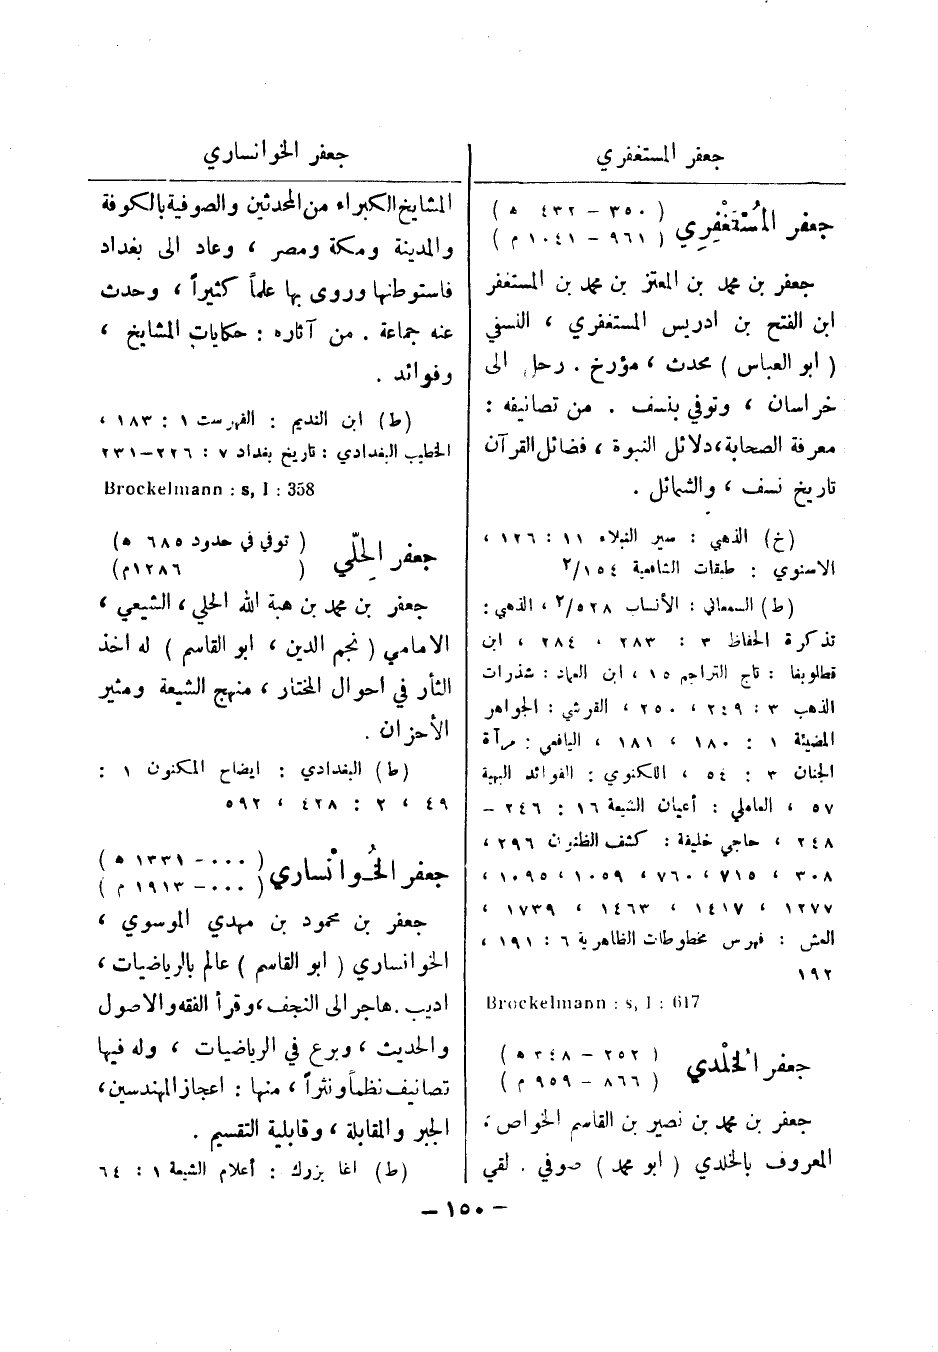 جعفر المستغفري
جعفر المُسْتَغْفِرِي ( ٣٥٠ – ٤٣٢ ه )
( ٩٦١ – ١٠٤١ م )
جعفر بن محمد بن المعتز بن محمد بن المستغفر
ابن الفتح بن ادريس المستغفري ، النسفي
( ابو العباس ) محدث ، مؤرخ . رحل الى
خراسان ، وتوفي بنسف . من تصانيفه :
معرفة الصحابة،دلائل النبوة ، فضائل القرآن
تاريخ نسف ، والشمائل .
(خ) الذهبي : سير النبلاء ١١ : ١٢٦ ،
الاسنوي : طبقات الشافعية ١٥٤/٢
(ط) السمعاني : الأنساب ٥٢٨/٢ ، الذهبي :
تذكرة الحفاظ ٣ : ٢٨٣ ، ٢٨٤ ، ابن
قطلوبغا : تاج التراجم ١٥ ، ابن العماد : شذرات
الذهب ٣ : ٢٤٩ ، ٢٥٠ ، القرشي : الجواهر
المضيئة ١ : ١٨٠ ، ١٨١ ، اليافعي : مرآة
الجنان ٣ : ٥٤ ، اللكنوي : الفوائد البهية
٥٧ ، العاملي : أعيان الشيعة ١٦ : ٢٤٦ –
٢٤٨ ، حاجي خليفة : كشف الظنون ٢٩٦ ،
٣٠٨ ، ٧١٥ ، ٧٦٠ ، ١٠٥٩ ، ١٠٩٥ ،
١٢٧٧ ، ١٤١٧ ، ١٤٦٣ ، ١٧٣٩ ،
العش : فهرس مخطوطات الظاهرية ٦ : ١٩١ ،
١٩٢
Brockelmann : s, I : 617
جعفر الخُلْدي ( ٢٥٢ – ٣٤٨ ه )
( ٨٦٦ – ٩٥٩ م )
جعفر بن محمد بن نصير بن القاسم الخواص ،
المعروف بالخلدي ( ابو محمد ) صوفي . لقي
جعفر الخوانساري
المشايخ الكبراء من المحدثين والصوفية بالكوفة
والمدينة ومكة ومصر ، وعاد الى بغداد
فاستوطنها وروى بها علماً كثيراً ، وحدث
عنه جماعة . من آثاره : حكايات المشايخ ،
وفوائد .
(ط) ابن النديم : الفهرست ١ : ١٨٣ ،
الخطيب البغدادي : تاريخ بغداد ٧ : ٢٢٦–٢٣١
Brockelmann : s, I : 358
جعفر الحِلّي ( توفي في حدود ٦٨٥ ه)
( ١٢٨٦م)
جعفر بن محمد بن هبة الله الحلي ، الشيعي ،
الامامي ( نجم الدين ، ابو القاسم ) له اخذ
الثأر في احوال المختار ، منهج الشيعة ومثير
الأحزان .
(ط) البغدادي : ايضاح المكنون ١ :
٤٩ ، ٢ : ٤٢٨ ، ٥٩٢
جعفر الخُوانْساري ( ٠٠٠ – ١٣٣١ ه )
( ٠٠٠ – ١٩١٣ م )
جعفر بن محمود بن مهدي الموسوي ،
الخوانساري ( ابو القاسم ) عالم بالرياضيات ،
اديب .هاجر الى النجف ،وقرأ الفقه والاصول
والحديث ، وبرع في الرياضيات ، وله فيها
تصانيف نظماً ونثراً ، منها : اعجاز المهندسين،
الجبر والمقابلة ، وقابلية التقسيم .
(ط) اغا بزرك : أعلام الشيعة ١ : ٦٤
– ١٥٠ –